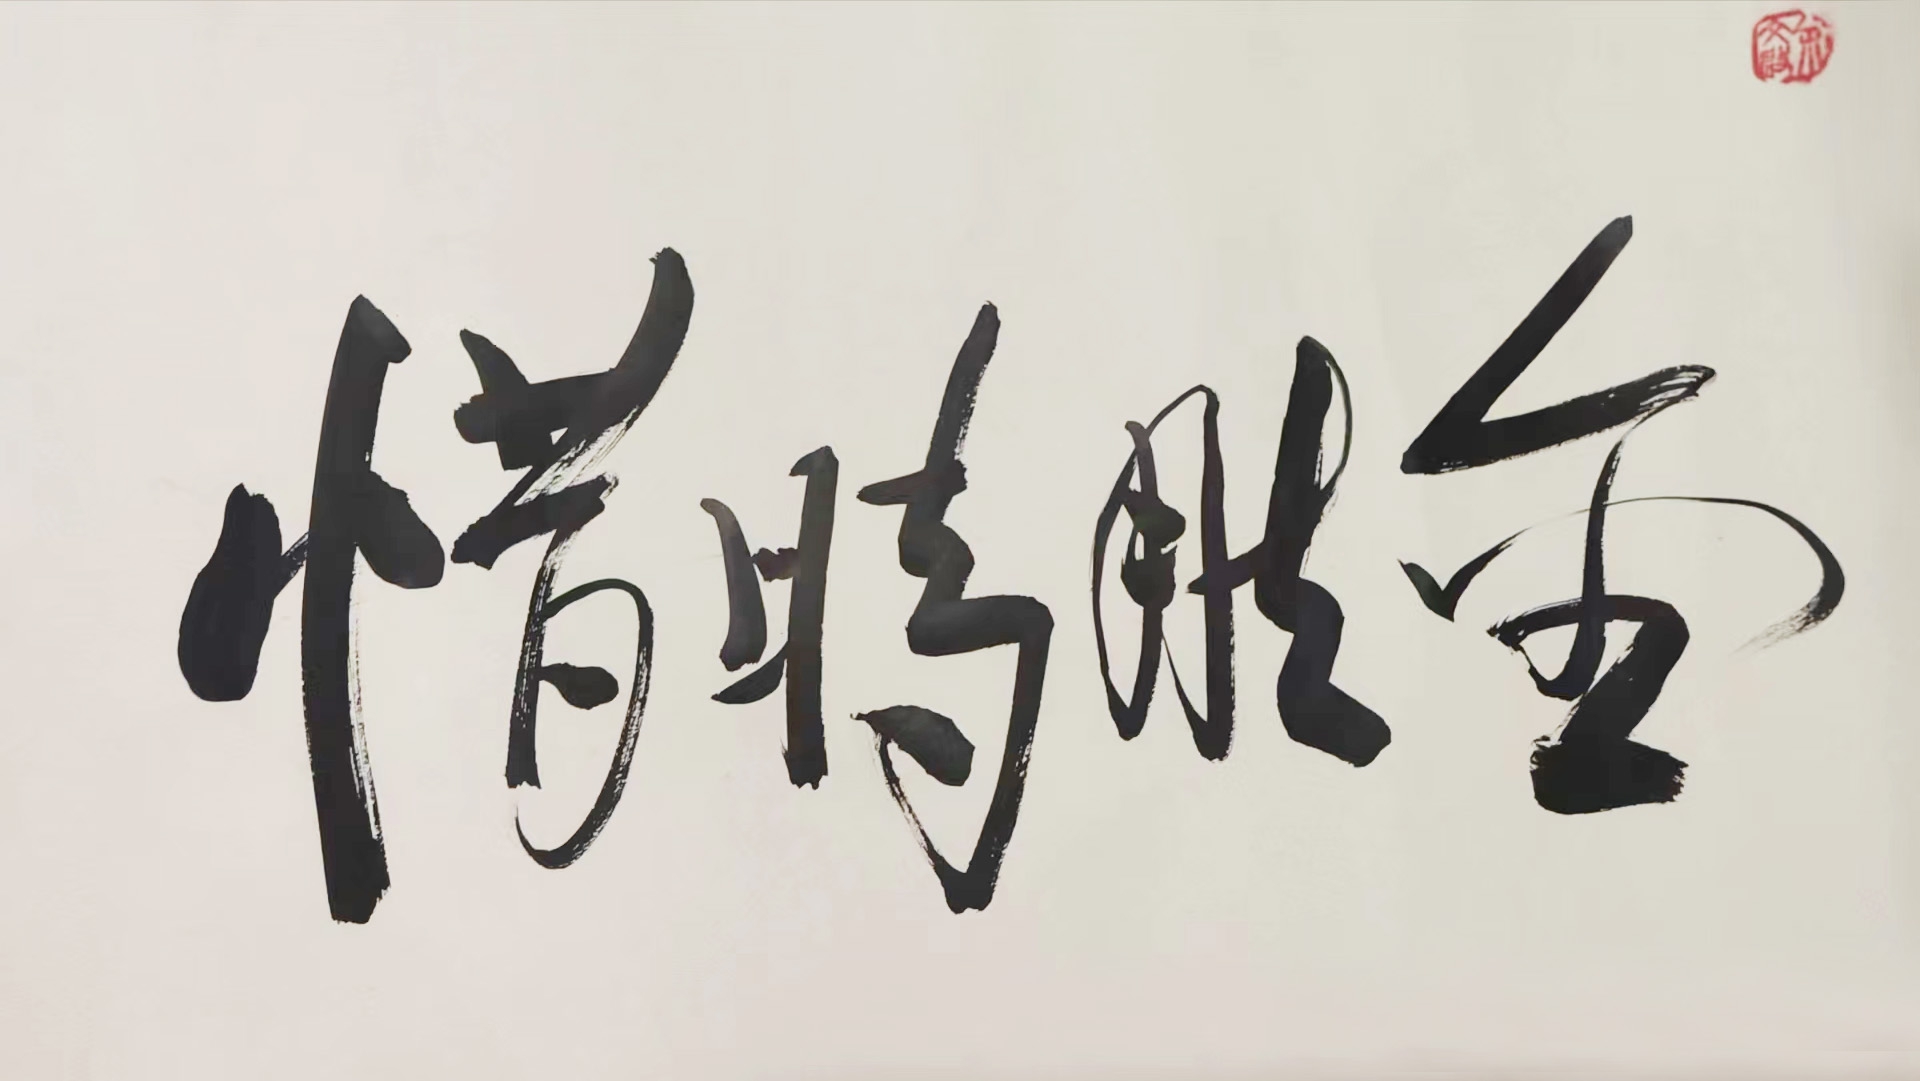 惜時勝金